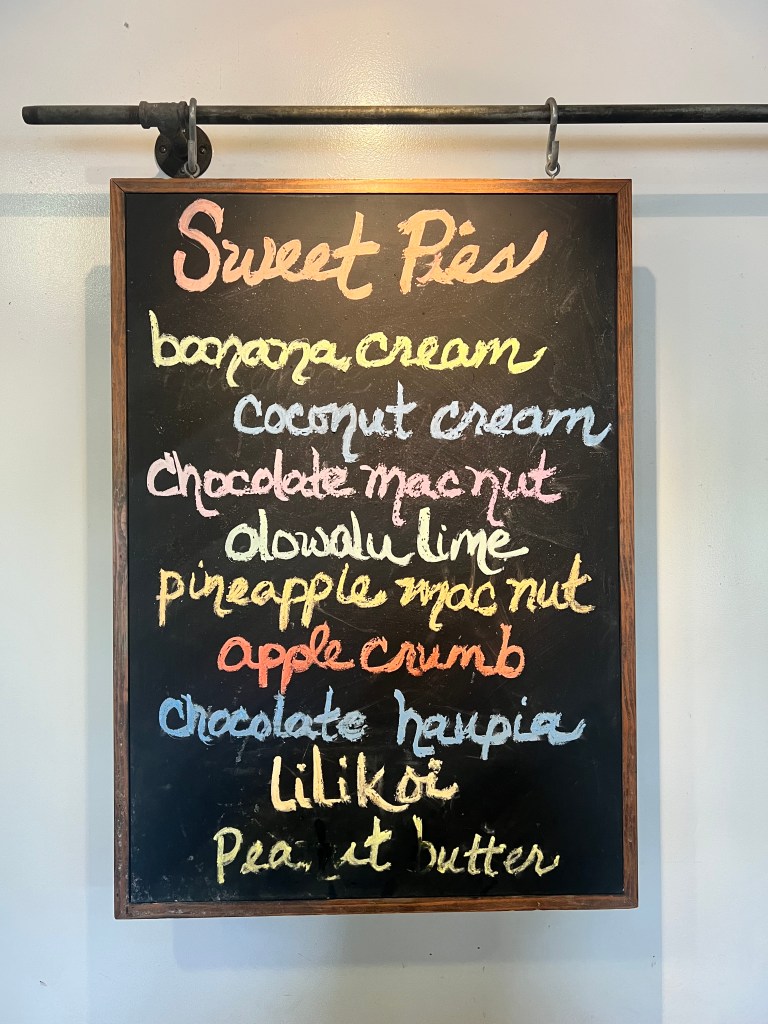 Sweet Pies
banana cream
coconut cream
chocolate mac nut
olowalu lime
pineapple mac nut
apple crumb
chocolate haupia
LiLikoi
Peanut butter